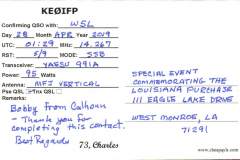 KEØIFP
Confirming QSO with W5L
Day 28 Month APR Year 2019
UTC 01:29 MHz 14.267
RST 5/9 Mode SSB
Transceiver YAESU 991A
Power 95 Watts
Antenna MFJ VERTICAL
Pse QSL Tnx QSL
Remarks
Bobby from Calhoun
- Thank you for
completing this contact.
Best Regards
73, Charles
SPECIAL EVENT
COMMEMORATING THE
LOUISIANA PURCHASE
111 EAGLE LAKE DRIVE
WEST MONROE, LA
71291
www.cheapqsls.com